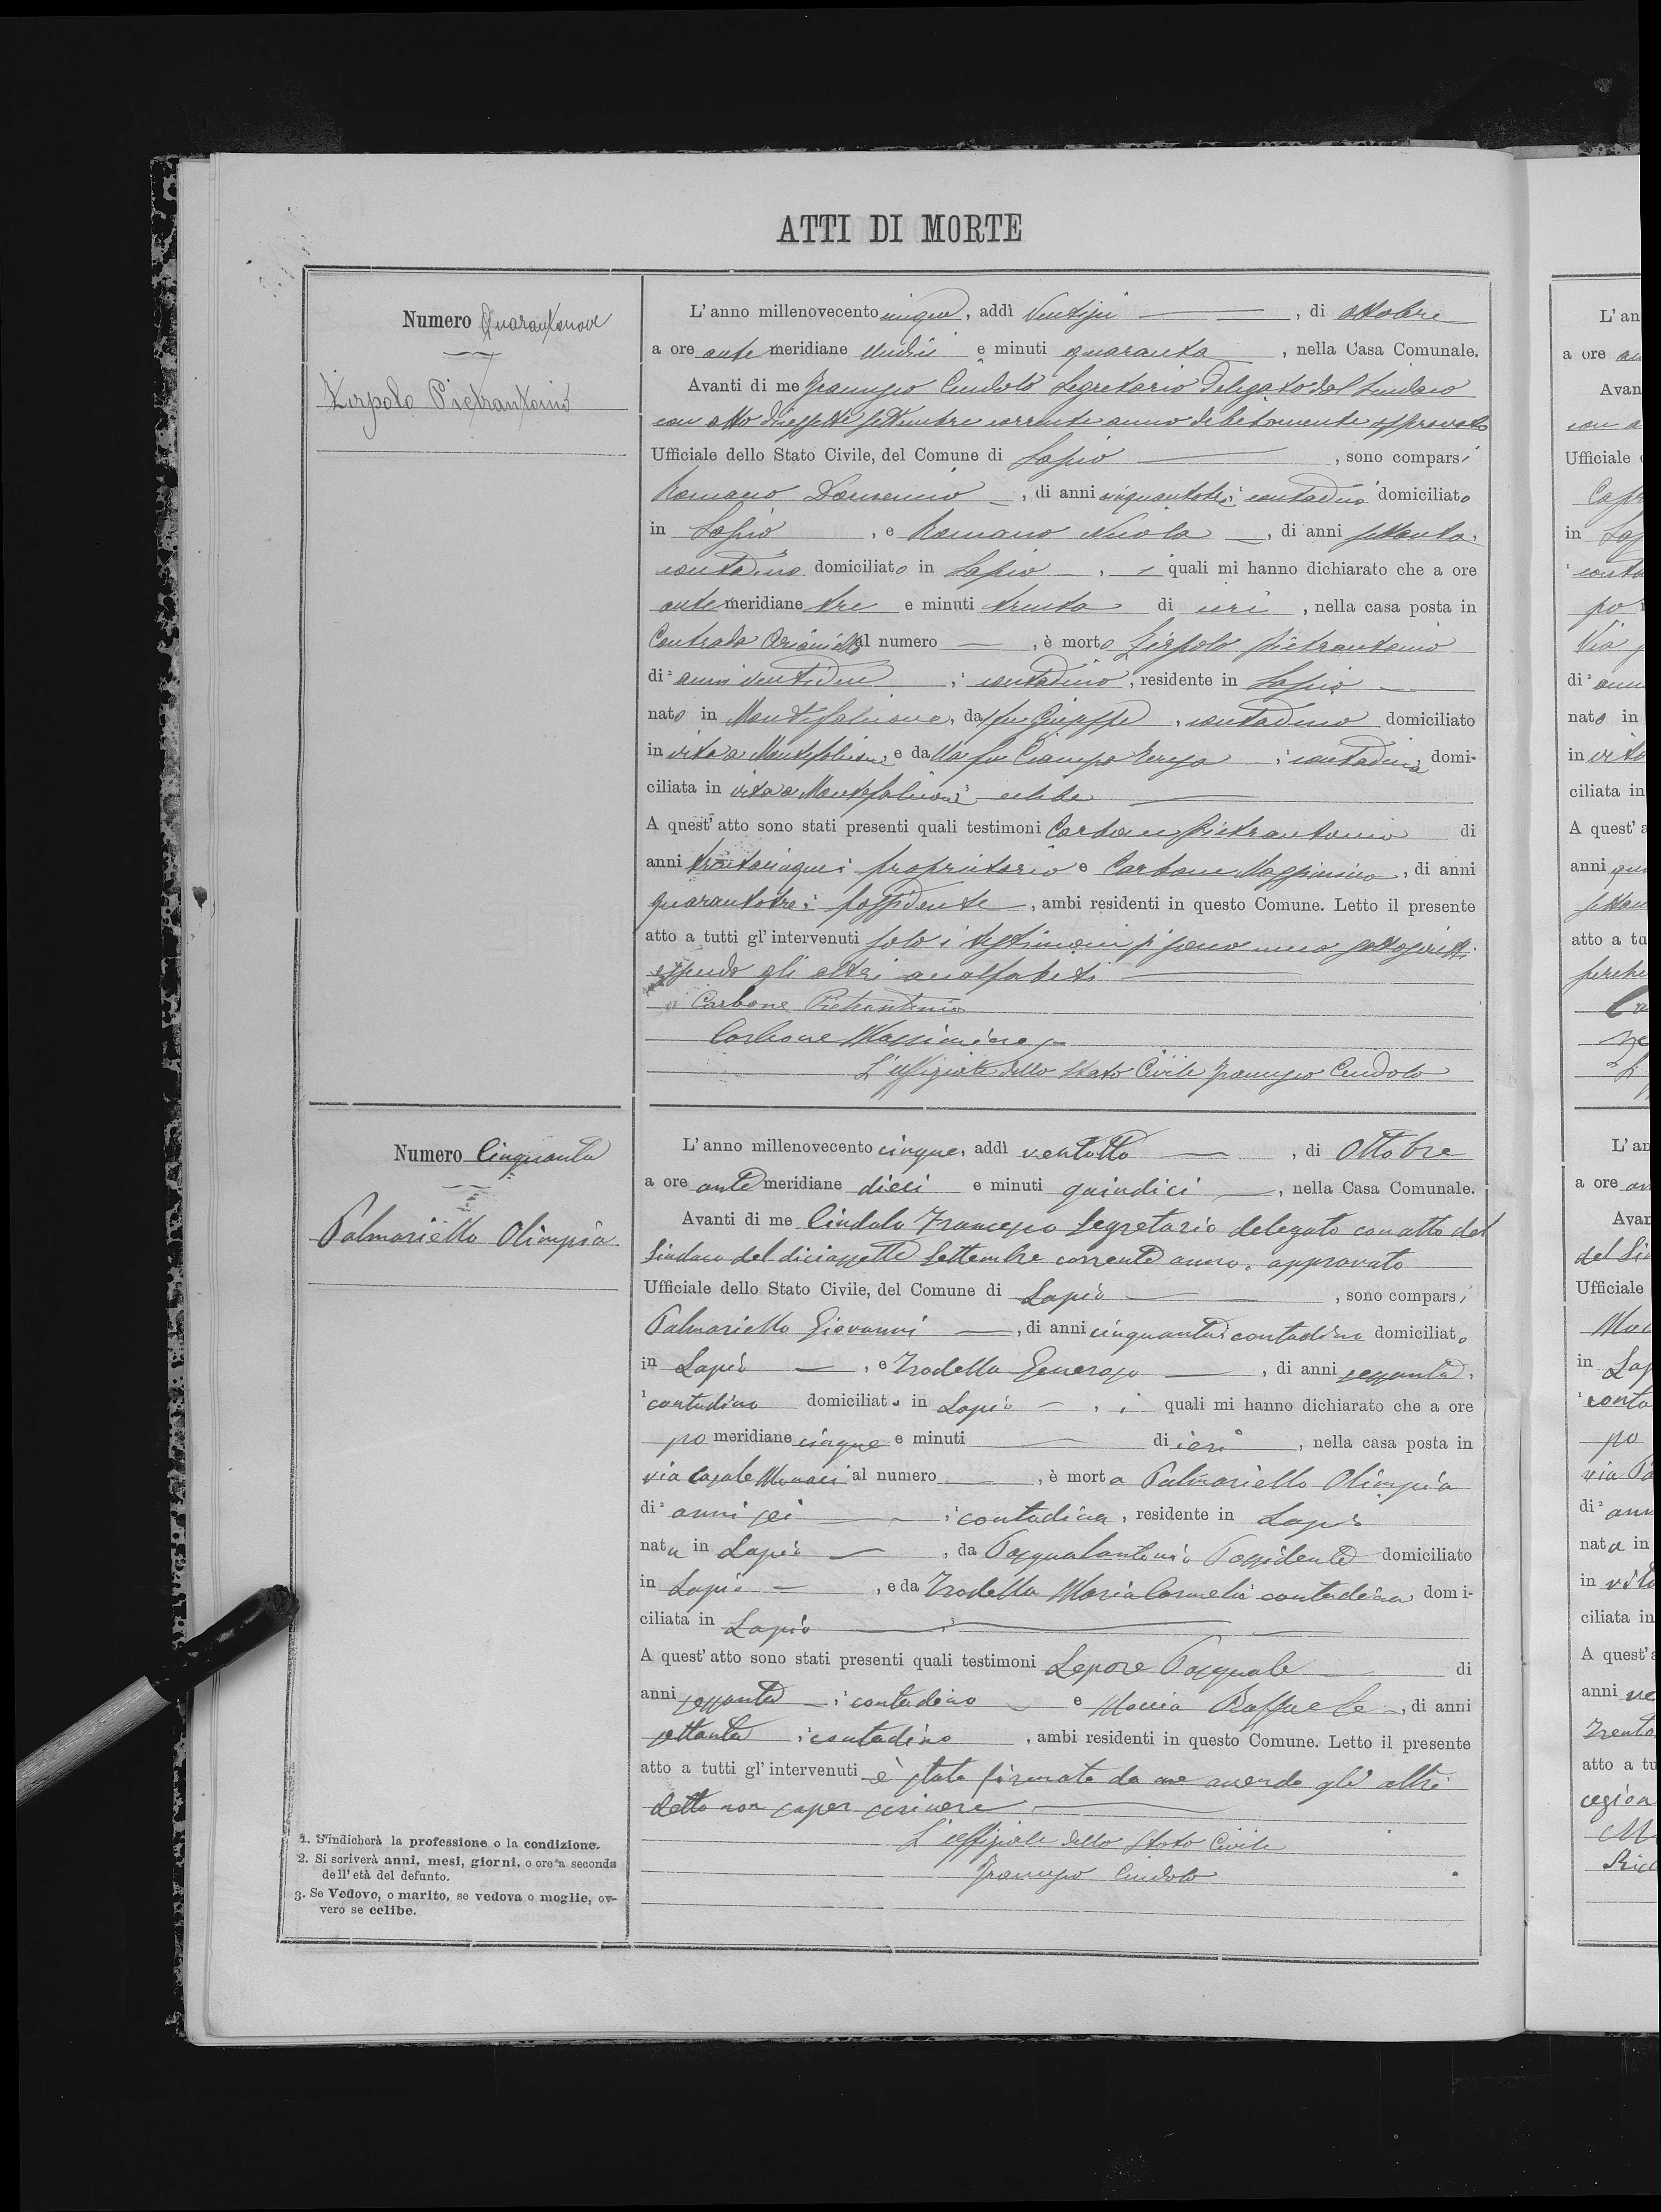 ATTI DI MORTE
Numero Quarantanove
Zirpolo Pietrantonio
L'anno millenovecento cinque, addì Ventisei, di Ottobre
a ore antemeridiane undici e minuti quaranta, nella Casa Comunale.
Avanti di me Francesco Cindolo Segretario Delegato dal Sindaco
con atto diciassette Settembre corrente anno debitamente approvato
Ufficiale dello Stato Civile, del Comune di Lapio, sono comparsi
Romano, di anni cinquantotto, contadino domiciliato
in Lapio, e Romano Nicola, di anni settanta,
contadino domiciliato in Lapio, i quali mi hanno dichiarato che a ore
antemeridiane tre e minuti trenta di ieri, nella casa posta in
Contrada Arianiello al numero, è morto Zirpolo Pietrantonio
di anni ventidue, contadino, residente in Lapio
nato in Montefalcione, da fu Giuseppe, contadino domiciliato
in vita a Montefalcione, e dalla fu Ciampo Teresa, contadina, domi-
ciliata in vita a Montefalcione celibe
A qnest' atto sono stati presenti quali testimoni Carbone Pietrantonio di
anni trentacinque, proprietario e Carbone Massimino, di anni
quarantatre, possidente, ambi residenti in questo Comune. Letto il presente
atto a tutti gl' intervenuti solo i testimoni si sono meco sottoscritti
essendo gli altri analfabeti
Carbone Pietrantonio
Carbone Massimino
L'uffiziale dello Stato Civile Francesco Cindolo
Numero Cinquanta
Palmariello Olimpia
L'anno millenovecento cinque, addì ventotto, di Ottobre
a ore antemeridiane dieci e minuti quindici, nella Casa Comunale.
Avanti di me Cindolo Francesco Segretario delegato con atto del
Sindaco del diciassette Settembre corrente anno, approvato
Ufficiale dello Stato Civile, del Comune di Lapio, sono comparsi
Palmariello Giovanni, di anni cinquanta, contadino domiciliato
in Lapio, e Trodella Generoso, di anni sessanta,
contadino domiciliato in Lapio, i quali mi hanno dichiarato che a ore
pomeridiane cinque e minuti di ieri, nella casa posta in
via Casale Monaci al numero, è morta Palmariello Olimpia
di anni sei, contadina, residente in Lapio
nata in Lapio, da Pasqualantonio Possidente domiciliato
in Lapio, e da Trodella Maria Carmela contadina domi-
ciliata in Lapio
A quest' atto sono stati presenti quali testimoni Lepore Pasquale di
anni sessanta, contadino e Moccia Raffaele, di anni
settanta, contadino, ambi residenti in questo Comune. Letto il presente
atto a tutti gl' intervenuti è stato firmato da me avendo gli altri
detto non saper scrivere
L'uffiziale dello Stato Civile
Francesco Cindolo
1. S'indicherà la professione o la condizione.
2. Si scriverà anni, mesi, giorni, o ore a seconda
dell' età del defunto.
3. Se Vedovo, o marito, se vedova o moglie, ov-
vero se celibe.
L'an
a ore
Avan
Ufficiale
in Lap
po
Via
di anni
nato in
in vita
ciliata in
A quest' a
anni
atto a tu
perche
L'an
a ore
Avan
del Sin
Ufficiale
in Lap
conta
po
via
di ann
nata in
in vita
ciliata in
A quest' a
anni
trenta
atto a tu